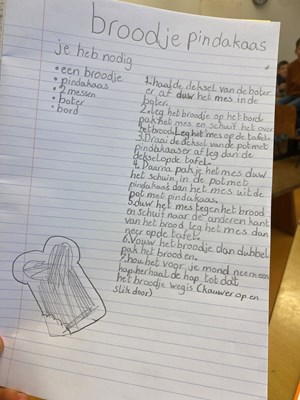 broodje pindakaas
je heb nodig
• een broodje
• pindakaas
• 2 messen
• boter
• bord
1. haal de deksel van de boter
er af duw het mes in de
boter.
2. leg het broodje op het bord
pak het mes en schuif het over
het brood. Leg het mes op de tafel.
3. Draai de deksel van de pot met
pindakaas er af leg dan de
deksel op de tafel.
4. Daarna pak je het mes duw
het schuin, in de pot met
pindakaas dan het mes uit de
pot met pindakaas.
5. duw het mes tegen het brood
en schuif naar de anderen kant
van het brood leg het mes dan
neer op de tafel.
6. Vouw het broodje dan dubbel
pak het brood en.
7. hou het voor je mond neem een
hap. herhaal de hap tot dat
het broodje weg is (kauw er op en
slik door)